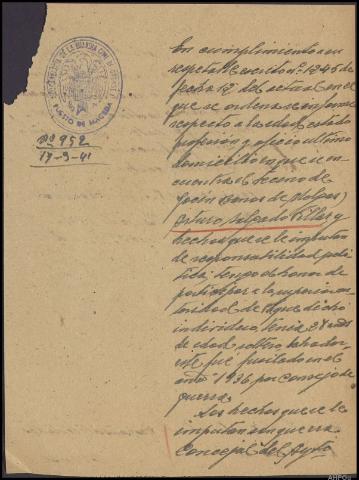 COMANDANCIA DE LA GUARDIA CIVIL DE
PUESTO DE MACEDA
Nº 952
17-9-41
En cumplimiento a su
respetable escrito nº 1845 de
fecha 12 del actual en el
que se ordena se informe
respecto a la edad, estado
profesión y oficio ultimo
domicilio en que se en
cuentra el vecino de
Arturo Salgado Villar y
hechos que se le imputan
de responsabilidad poli
tica; tengo el honor de
participar a la superior au
toridad de que dicho
individuo, tenia 28 años
de edad soltero labrador
este fue fusilado en el
año 1936 por Consejo de
guerra.
Los hechos que se le
imputan son que era
Concejal del Ayto
AHPOu